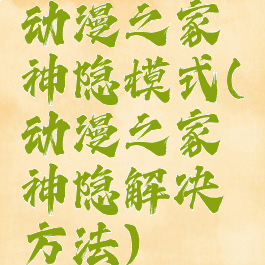 动漫之家
神隐模式(
动漫之家
神隐解决
方法)